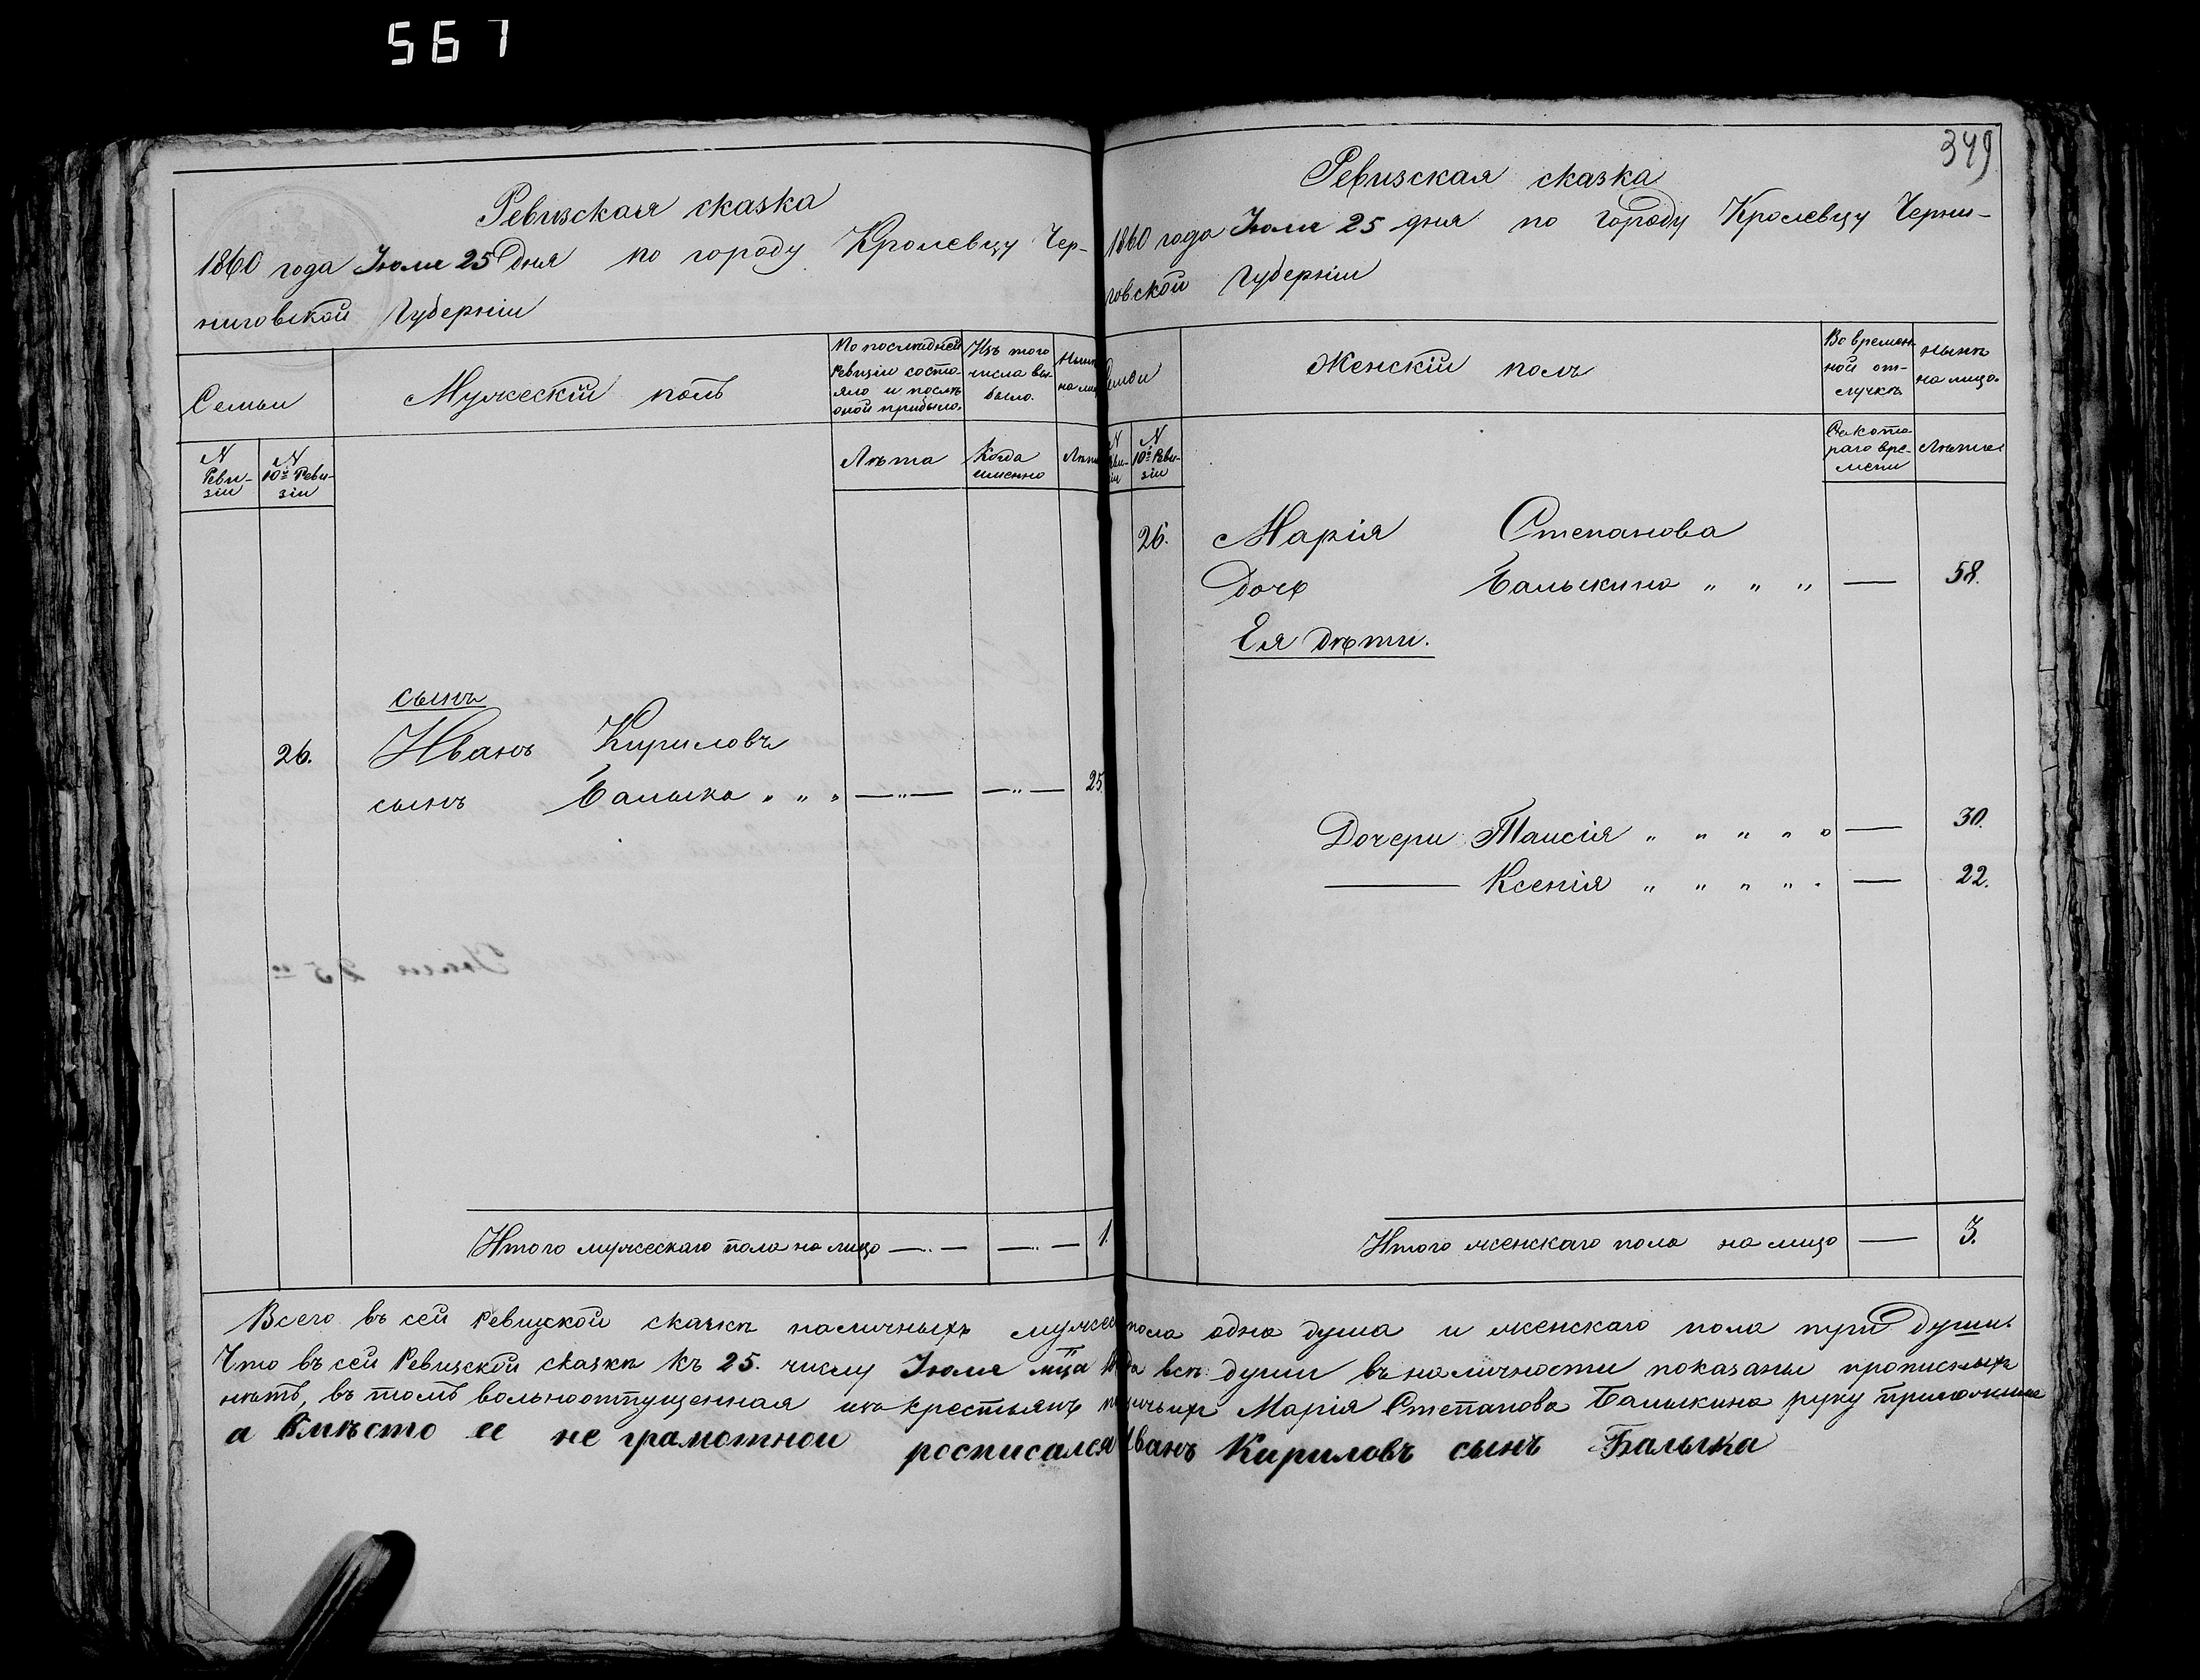 567
349
Ревизская сказка
1860 года Іюля 25 дня по городу Кролевцу Чер-
ниговской Губерніи
Семьи
Мужескій полъ
По последней
Ревизіи состо-
яло и послѣ
оной прибыло.
Изъ того
числа вы-
было.
Нынѣ
на
N
Реви-
зіи
N
10й Реви-
зіи
Лѣта
Когда
именно
Лѣта
сынъ
26. Иванъ Кириловъ
сынъ Балыка „ „ „ — „ — — „ — 25.
Итого мужескаго пола на лицо — „ — — „ — 1.
Ревизская сказка
1860 года Іюля 25 дня по городу Кролевцу Черни-
говской Губерніи
Семьи
Женскій полъ
Во времен-
ной от-
лучкѣ
нынѣ
на лицо.
N
N
10й Реви-
зіи
Съ кото-
раго вре-
мени
Лѣта
26. Марія Степанова
дочь Балыкина „ „ „ — 58.
Ея дѣти.
Дочери Таисія „ „ „ „ „ — 30.
— Ксенія „ „ „ „ „ — 22.
Итого женскаго пола на лицо — 3.
Всего въ сей ревизкой сказкѣ наличныхъ мужес пола одна душа и женскаго пола три души.
Что въ сей Ревизской сказкѣ къ 25. числу Іюля мца года всѣ души въ наличности показаны прописныхъ
нѣтъ, въ томъ вольноотпущенная изъ крестьянъ Марія Степанова Балыкина руку приложила
а вмѣсто ее не грамотной росписался Иванъ Кириловъ сынъ Балыка